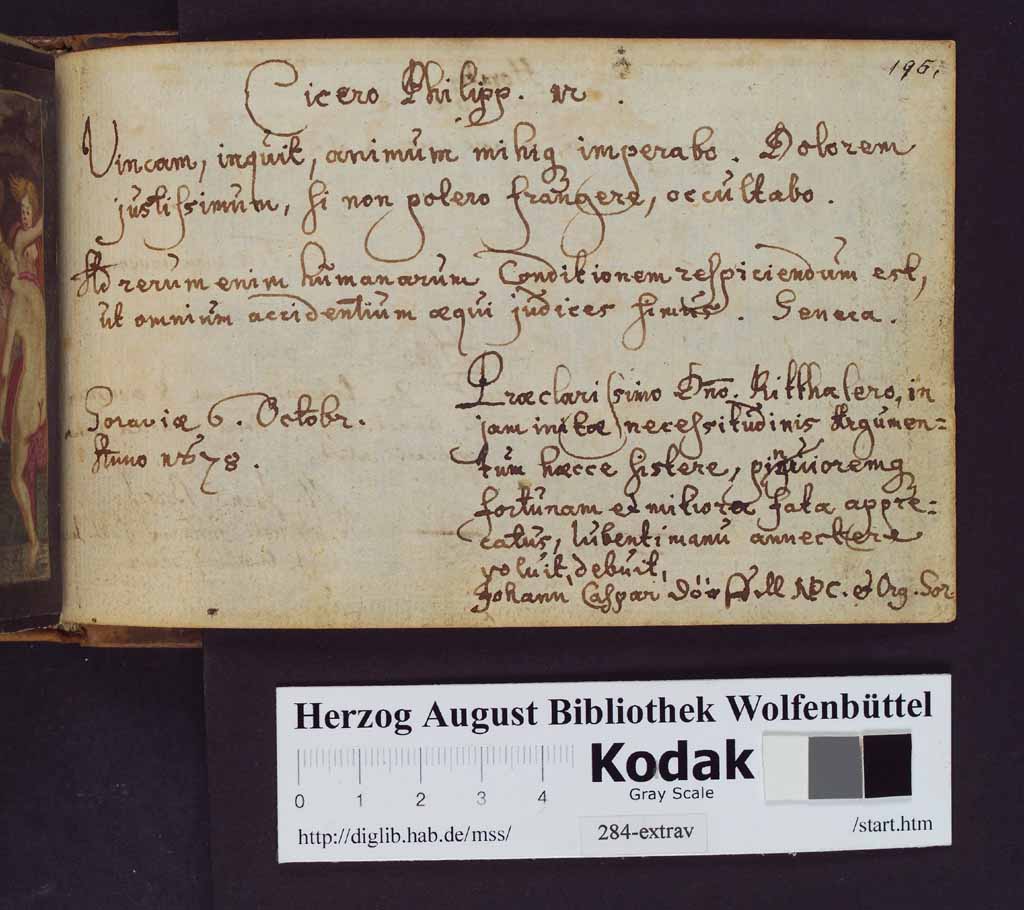 195.
Cicero Philipp. 12.
Vincam, inquit, animum mihiq imperabo. Dolorem
justissimum, si non potero frangere, occultabo.
Ad rerum enim humanarum Conditionem respiciendum est,
ut omnium accidentium æqui judices simus. Seneca.
Soraviæ 6. Octobr.
Anno 1678.
Præclarissimo Dño. Ritthalero, in
jam initæ necessitudinis Argumen=
tum hæcce sistere, pinguioremq
fortunam et mitiora fata appre=
catus, lubenti manu annectere
voluit, debuit,
Johann Caspar NPC. & Org. Sor
Herzog August Bibliothek Wolfenbüttel
0 1 2 3 4
Kodak
Gray Scale
http://diglib.hab.de/mss/
284-extrav
/start.htm